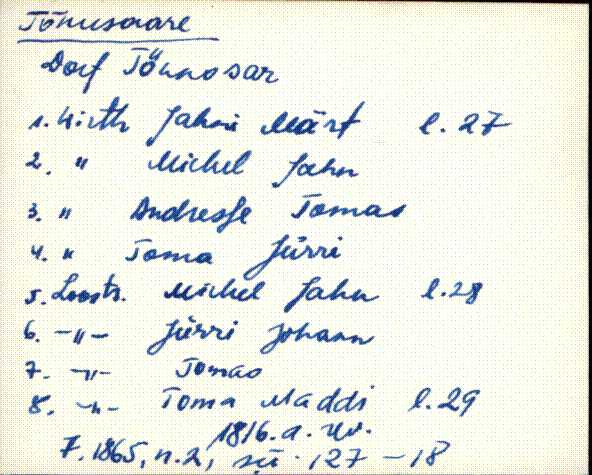 Tõnusaare
Dorf Tönnosar
1. Wirth Jahni Märt l. 27
2. " Michel Jahn
3. " Andresse Tomas
4. " Toma Jürri
5. Loostr. Michel Jahn l. 28
6. -"- Jürri Johann
7. -"- Tomas
8. -"- Toma Maddi l. 29
1816. a. rev.
F. 1865, n. 2, sü. 127-18